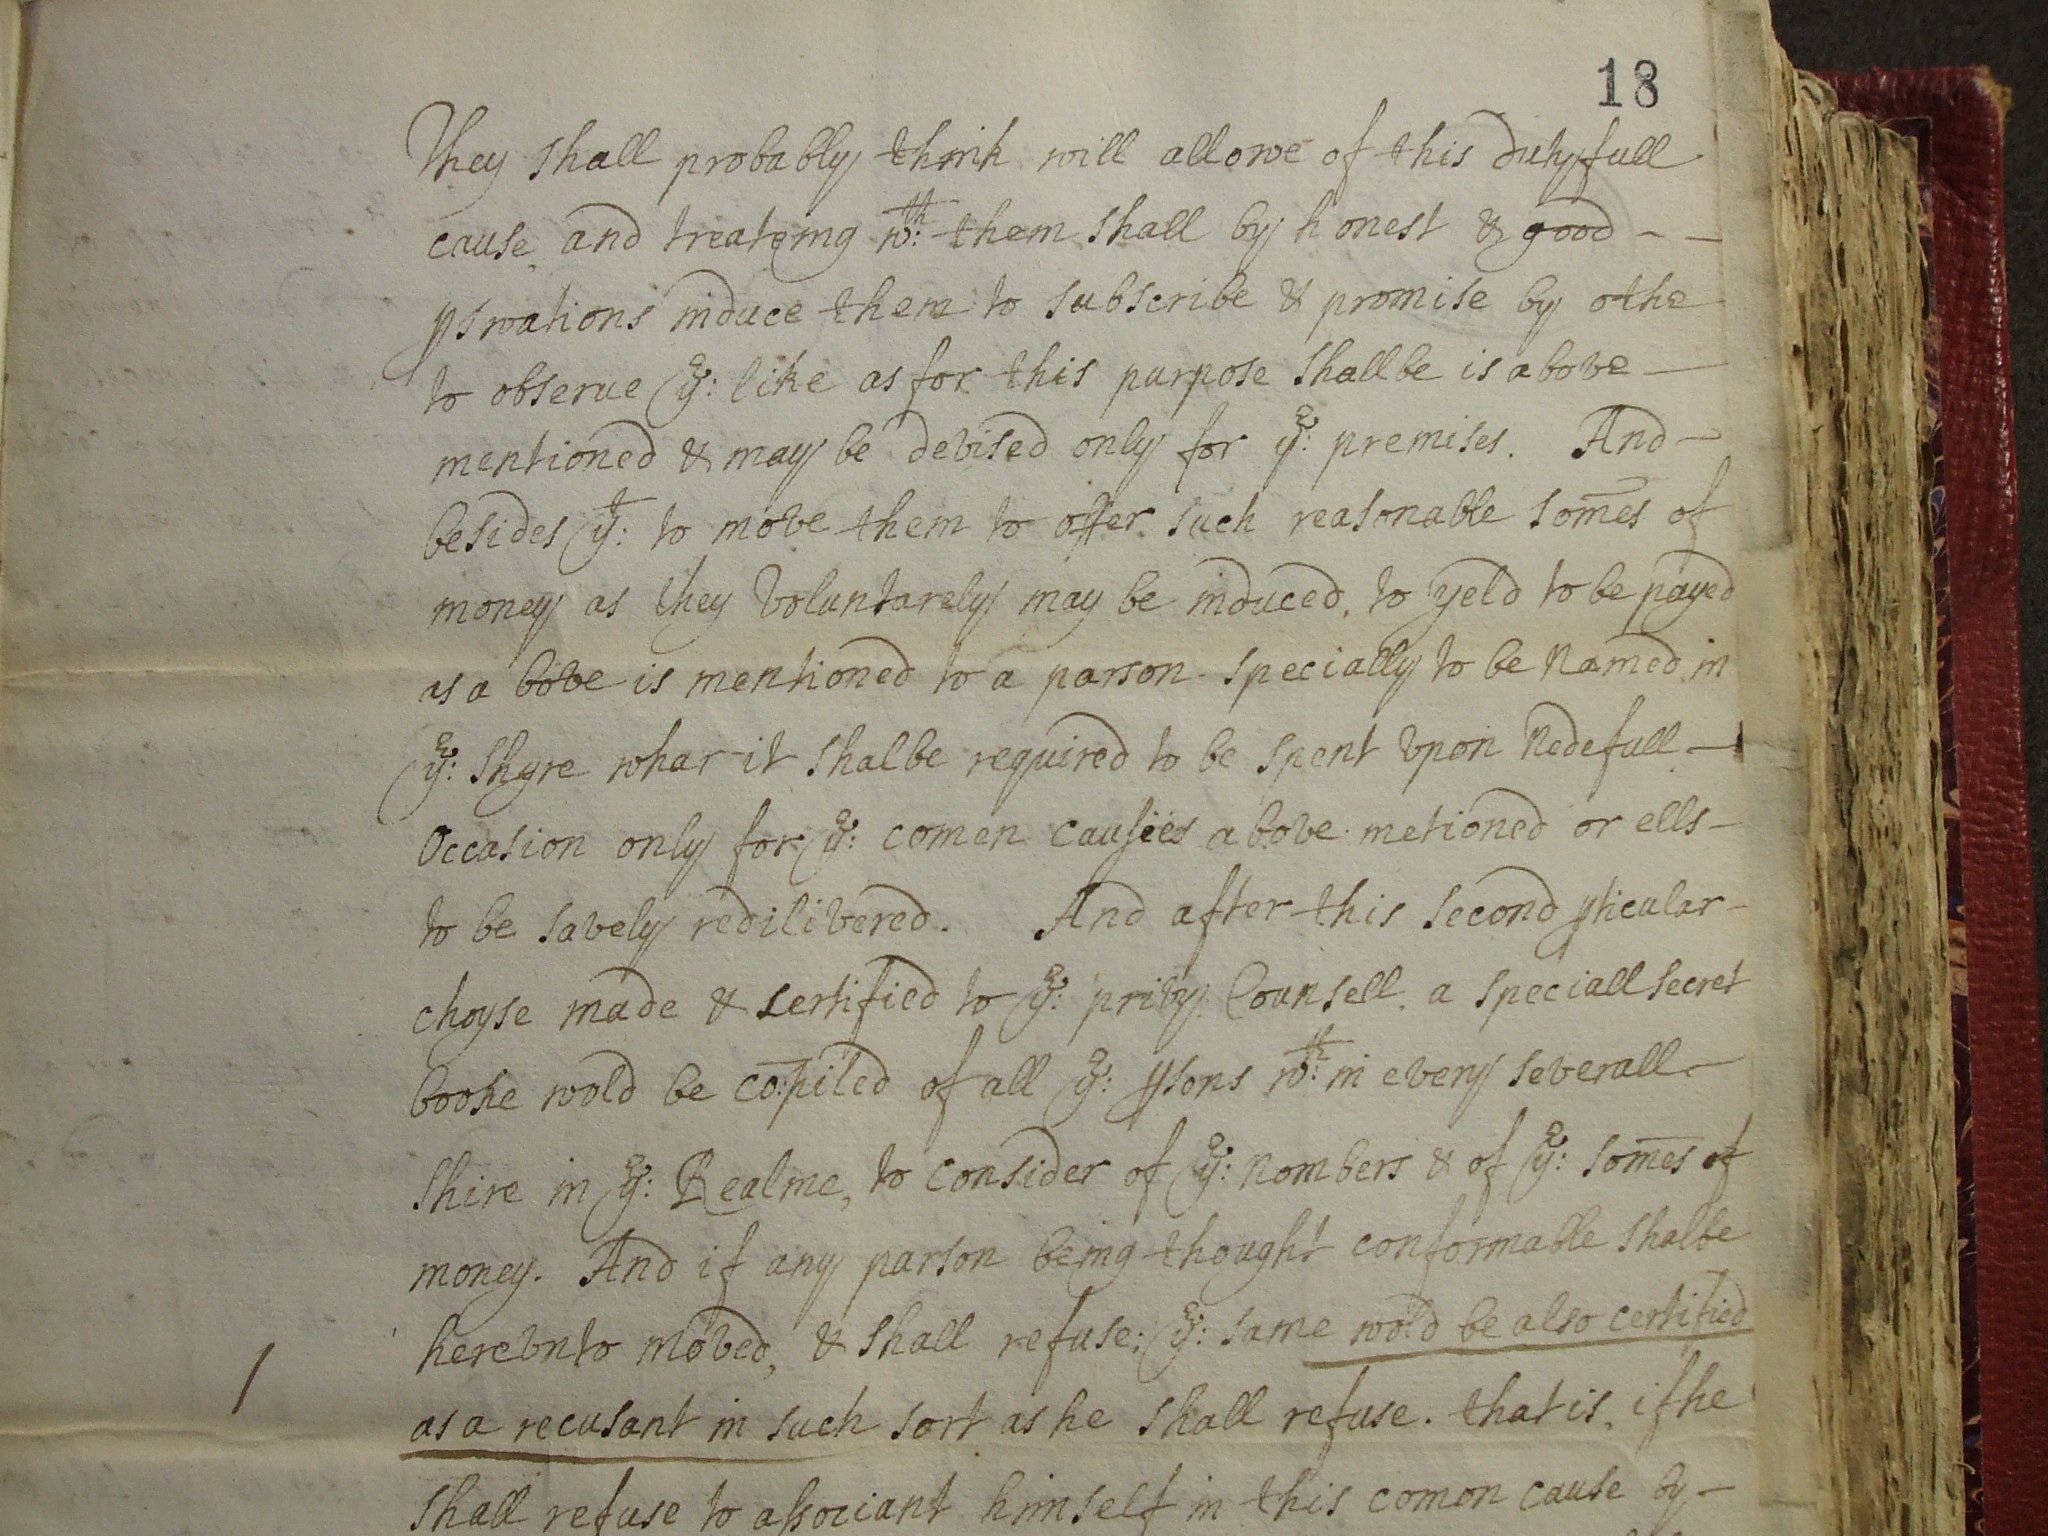 18
They shall probably think will allowe of this dutyfull
cause and treateing wth: them shall by honest & good - -
pswations induce them to subscribe & promise by othe
to observe ye: like as for this purpose shallbe is above —
mentioned & may be devised only for ye: premises. And —
besides yt: to move them to offer such reasonable somes of
money as they voluntarely may be induced, to yeld to be payed
as a bove is mentioned to a parson specially to be Named in
ye: shyre whar it shalbe required to be spent vpon Nedefull —
Occasion only for ye: comen causies above metioned or ells —
to be savely redilivered. And after this second pticular —
choyse made & certified to ye: privy Counsell. a speciall secret
booke wold be co:piled of all ye: psons wth: in every severall —
Shire in ye: Realme, to consider of ye: nombers & of ye: somes of
money. And if any parson being thought conformable shalbe
herevnto moved, & shall refuse: ye: same wold be also certified
as a recusant in such sort as he shall refuse. that is, if he
shall refuse to associant himself in this comon cause by —